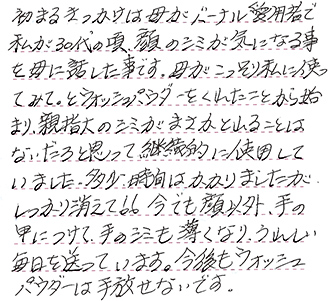 初まるきっかけは母がバーナル愛用者で
私が30代の頃、顔のシミが気になる事
を母に話した事です。母がこっそり私に使っ
てみて。とウォッシュパウダーをくれたことから始
まり、親指大のシミがまさかとれることは
ないだろと思って継続的に使用して
いました。多少時間はかかりましたが
しっかり消えて!!今でも顔以外、手の
甲につけて、手のシミも薄くなり、うれしい
毎日を送っています。今後もウォッシュ
パウダーは手放せないです。